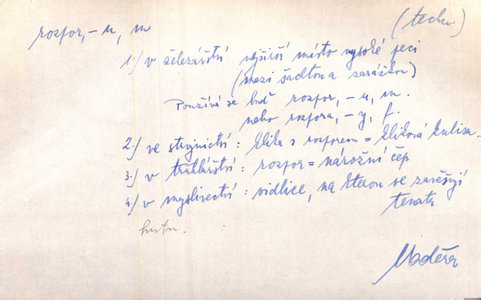 (techn.)
rozpor, -u, m
1.) v železářství nejširší místo vysoké peci
(mezi šachtou a zarážkou)
Používá se buď rozpor, -u, m.
nebo rozpora, -y, f.
2.) ve strojnictví: klika s rozporem = kliková kulisa
3.) v truhlářství: rozpor = nárožní čep
4.) v myslivectví: vidlice, na kterou se zavěšují
tenata
hutn.